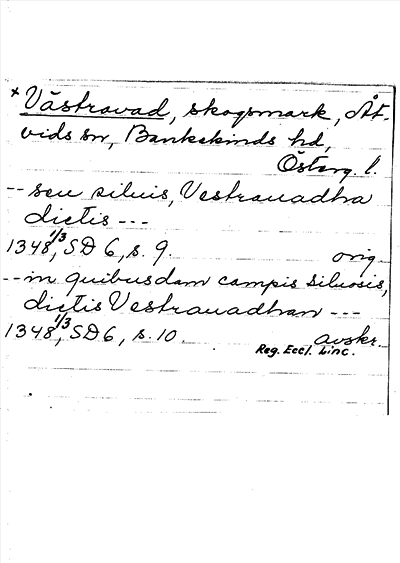 * Västravad, skogsmark, Åt-
vids sn, Bankekinds hd,
Österg. l.
-- seu siluis, Vestrauadhra
dictis ---
1348 1/3, SD 6, s. 9. orig.
-- in quibusdam campis siluosis,
dictis Vestrauadhan ---
1348 1/3, SD 6, s. 10. avskr.
Reg. Eccl. Linc.